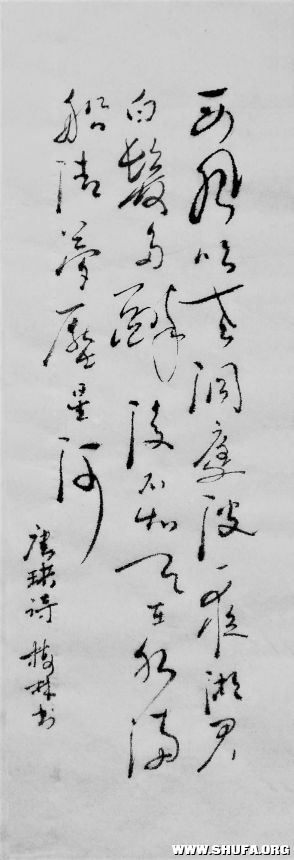 西風吹老洞庭波一夜湘君
白髮多醉後不知天在水滿
船清夢壓星河
唐珙詩 林書
WWW.SHUFA.ORG